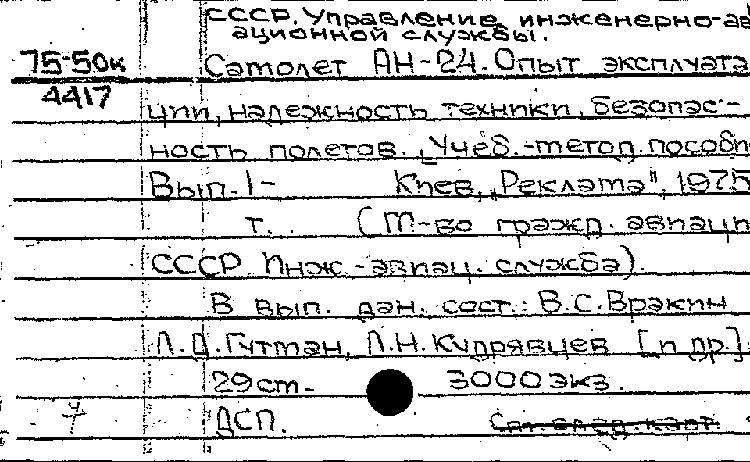 СССР. Управление инженерно-ав
ационной службы.
75-50к
Самолет АН-24. Опыт эксплуата
4417
ции, надежность техники, безопас-
ность полетов. Учеб.-метод. пособи
Вып. 1- Киев, „Реклама", 1975
т. (М-во гражд. авиаци
СССР Инж.-авиац. служба).
В вып. дан. сост.: В.С. Вракин
Л.Д. Гутман, Л.Н. Кудрявцев [и др.]
29 cm. 3000 экз.
ДСП.
См. след. карт.